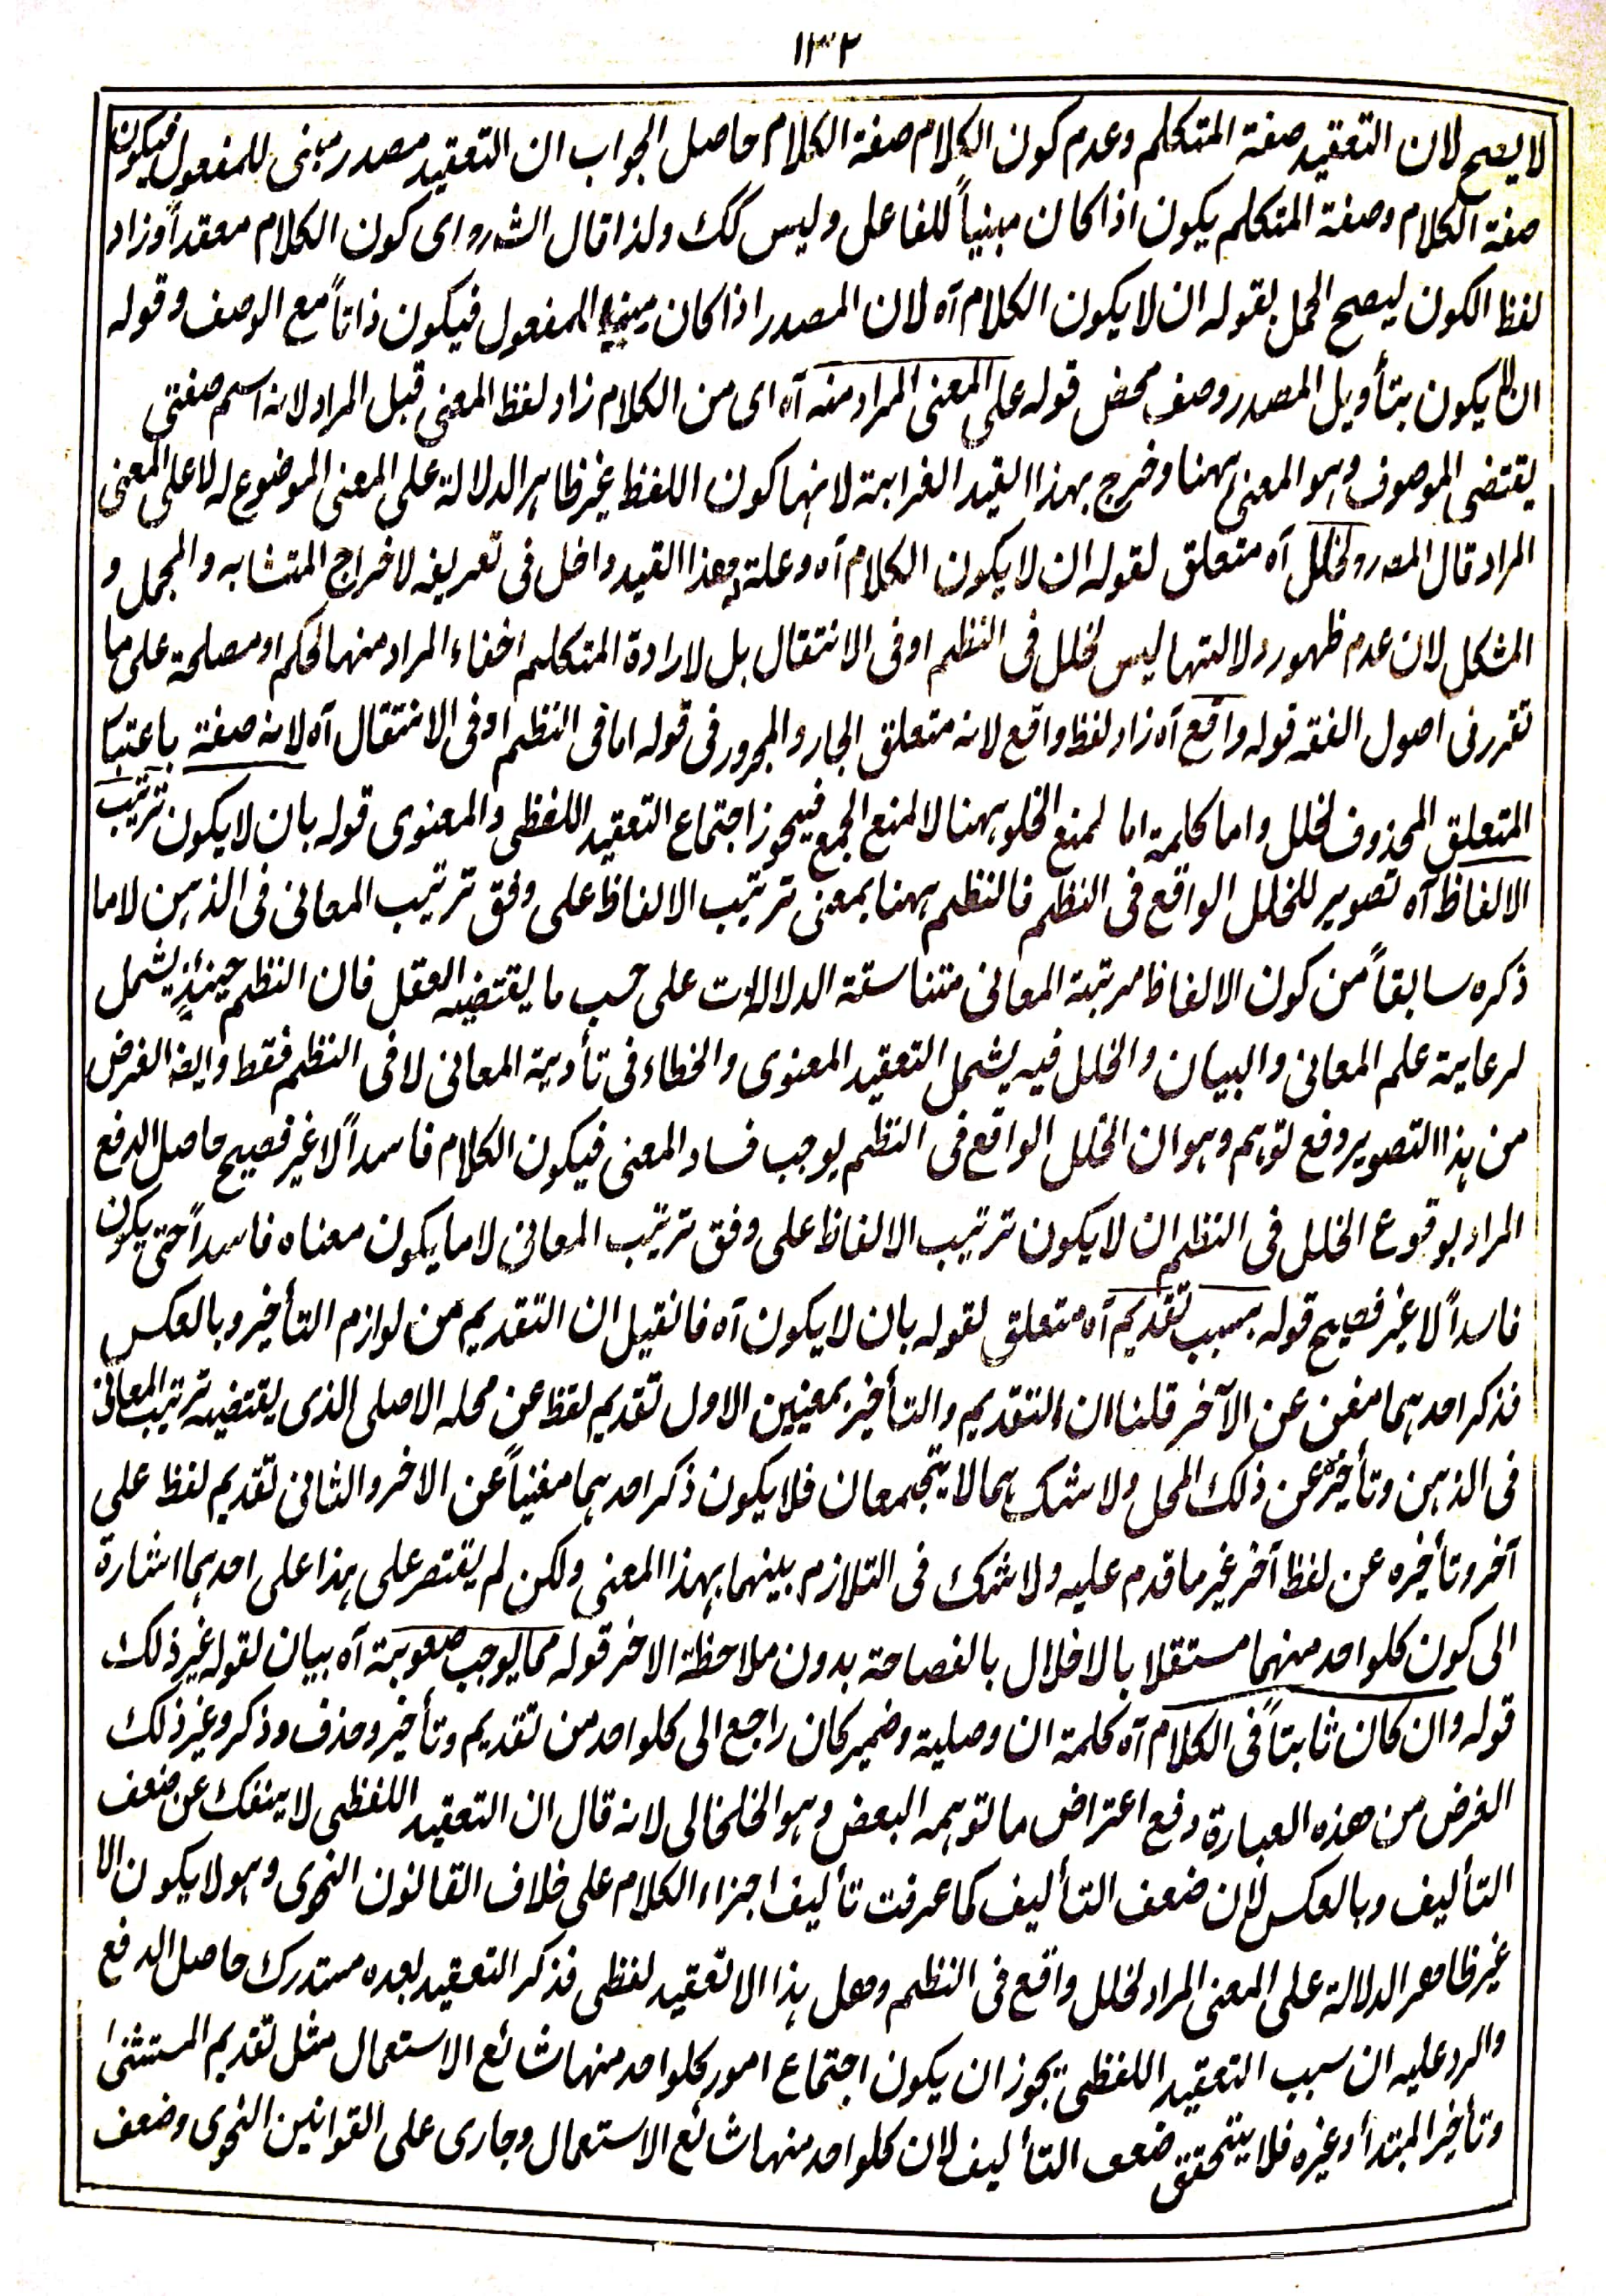 ١٣٢
لا يصح لان التعقيد صفة المتكلم وعدم كون الكلام صفة الكلام حاصل الجواب ان التعقيد مصدر مبنى للمفعول فيكون
صفة الكلام وصفة المتكلم يكون اذا كان مبنياً للفاعل وليس كك ولذا قال الشه رو اى كون الكلام معقداً وزاد
لفظ الكون ليصح الحمل بقوله ان لا يكون الكلام آه لان المصدر اذا كان مبنيا للمفعول فيكون ذاتاً مع الوصف وقوله
ان لا يكون بتأويل المصدر وصف محض قوله على المعنى المراد منه آه اى من الكلام زاد لفظ المعنى قبل المراد لانه اسم صفتى
يقتضى الموصوف وهو المعنى ههنا وخرج بهذا القيد الغرابة لانها كون اللفظ غير ظاهر الدلالة على المعنى الموضوع له لا على المعنى
المراد قال المصه رو لخلل آه متعلق لقوله ان لا يكون الكلام آه وعلة له وهذا القيد داخل فى تعريفه لاخراج المتشابه والمجمل و
المشكل لان عدم ظهور دلالتها ليس لخلل فى النظم او فى الانتقال بل لارادة المتكلم اخفاء المراد منها لحكم او مصلحة على ما
تقرر فى اصول الفقه قوله واقع آه زاد لفظ واقع لانه متعلق الجار والمجرور فى قوله اما فى النظم او فى الانتقال آه لانه صفة باعتبار
المتعلق المحذوف لخلل واما كلمة اما لمنع الخلو ههنا لا لمنع الجمع فيجوز اجتماع التعقيد اللفظى والمعنوى قوله بان لا يكون ترتيب
الالفاظ آه تصوير للخلل الواقع فى النظم فالنظم ههنا بمعنى ترتيب الالفاظ على وفق ترتيب المعانى فى الذهن لا ما
ذكره سابقاً من كون الالفاظ مرتبة المعانى متناسقة الدلالات على حسب ما يقتضيه العقل فان النظم حينئذٍ يشمل
لرعاية علم المعانى والبيان والخلل فيه يشمل التعقيد المعنوى والخطاء فى تأدية المعانى لا فى النظم فقط وايضا الغرض
من هذا التصوير دفع توهم وهو ان الخلل الواقع فى النظم يوجب فساد المعنى فيكون الكلام فاسداً لا غير فصيح حاصل الدفع
المراد بوقوع الخلل فى النظم ان لا يكون ترتيب الالفاظ على وفق ترتيب المعانى لا ما يكون معناه فاسداً حتى يكون
فاسداً لا غير فصيح قوله بسبب تقديم آه متعلق لقوله بان لا يكون آه فانقيل ان التقديم من لوازم التأخير وبالعكس
فذكر احدهما مغن عن الآخر قلنا ان التقديم والتأخير بمعنيين الاول تقديم لفظ عن محله الاصلى الذى يقتضيه ترتيب المعانى
فى الذهن وتأخيره عن ذلك المحل ولا شك هما لا يجتمعان فلا يكون ذكر احدهما مغنياً عن الاخر والثانى تقديم لفظ على
آخر وتأخيره عن لفظ آخر غير ما قدم عليه ولا شك فى التلازم بينهما بهذا المعنى ولكن لم يقتصر على هذا على احدهما اشارة
الى كون كلواحد منهما مستقلا بالاخلال بالفصاحة بدون ملاحظة الاخر قوله مما يوجب صعوبة آه بيان لقوله غير ذلك
قوله وان كان ثابتاً فى الكلام آه كلمة ان وصلية وضمير كان راجع الى كلواحد من تقديم وتأخير وحذف وذكر وغير ذلك
الغرض من هذه العبارة دفع اعتراض ما توهمه البعض وهو الخلخالى لانه قال ان التعقيد اللفظى لا ينفك عن ضعف
التأليف وبالعكس لان ضعف التأليف كما عرفت تأليف اجزاء الكلام على خلاف القانون النحوى وهو لا يكون الا
غير ظاهر الدلالة على المعنى المراد لخلل واقع فى النظم وهل هذا الا تعقيد لفظى فذكر التعقيد بعده مستدرك حاصل الدفع
والرد عليه ان سبب التعقيد اللفظى يجوز ان يكون اجتماع امور كلواحد منها شائع الاستعمال مثل تقديم المستثنىٰ
وتأخير المبتدأ وغيره فلا يتحقق ضعف التأليف لان كلواحد منها شائع الاستعمال وجارى على القوانين النحوى وضعف